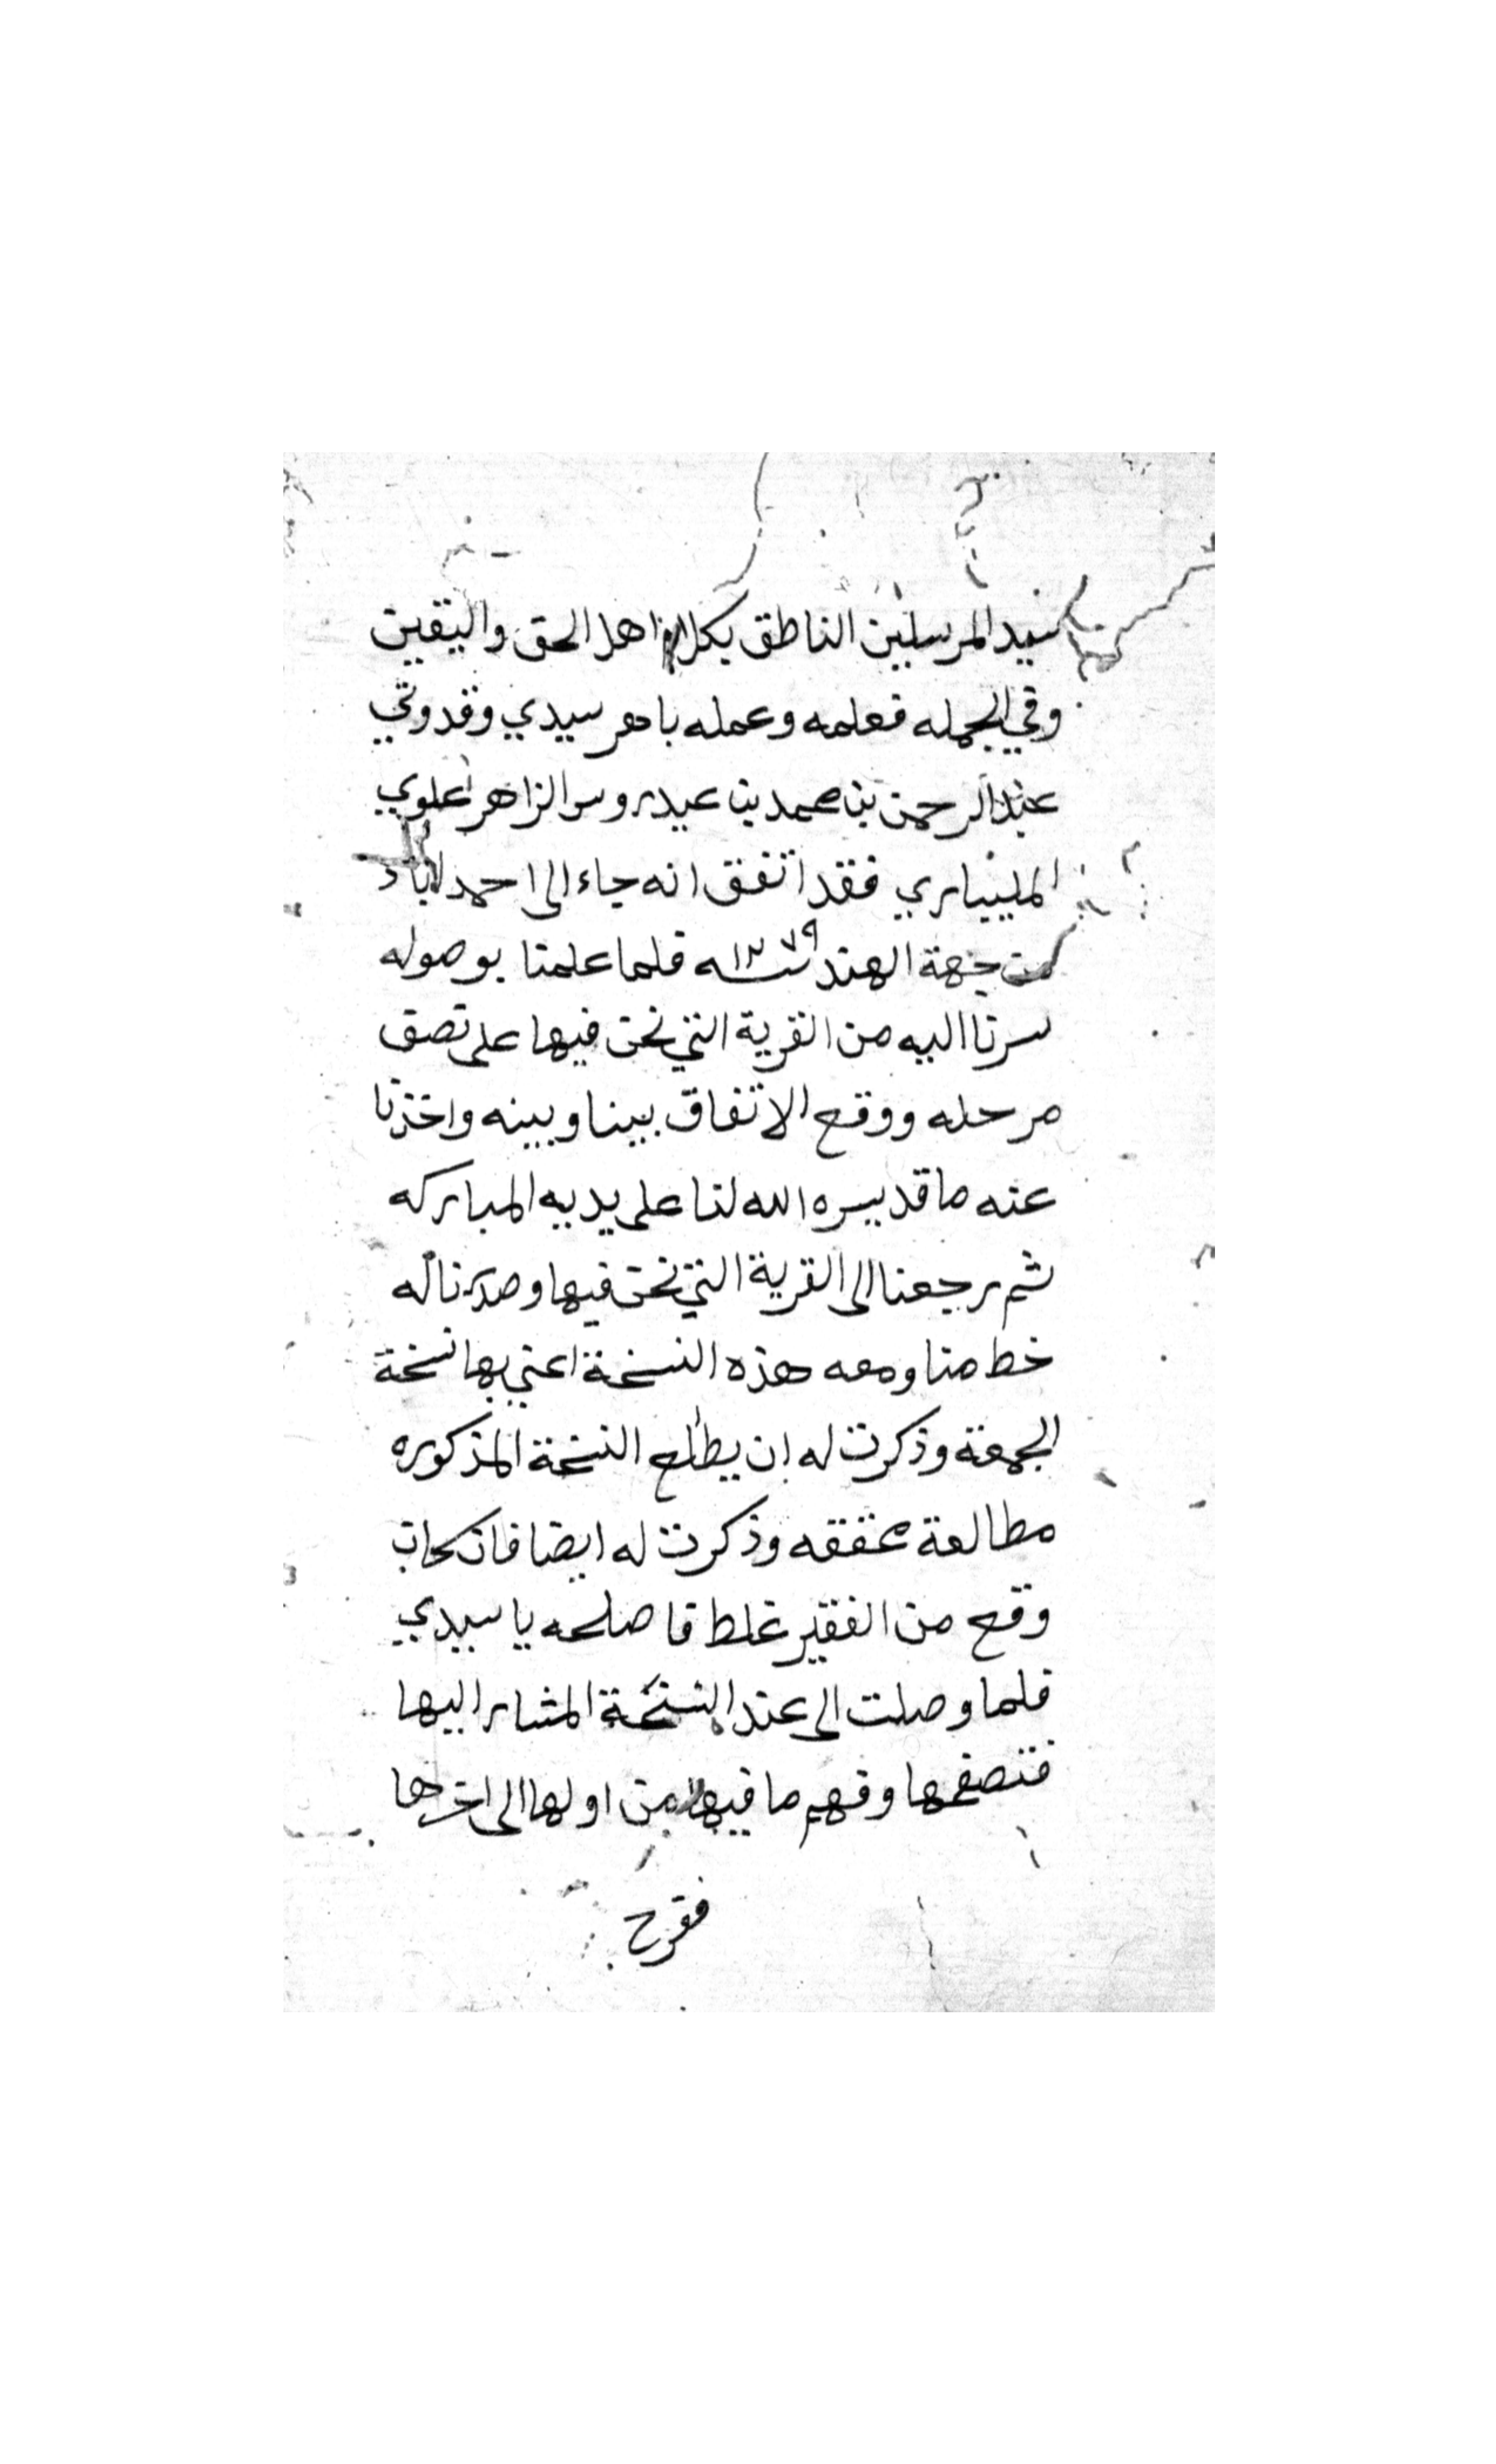 سيد المرسلين الناطق بكلام اهل الحق واليقين
وفي الجمله فعلمه وعمله باهر سيدي وقدوتي
عبد الرحمن بن محمد بن عيدروس الزاهر علوي
المليباري فقد اتفق انه جاء الى احمد اباد
من جهة الهند سنه ١٢٧٩ فلما علمنا بوصوله
سرنا اليه من القرية التي نحن فيها على نصف
مرحله ووقع الاتفاق بيننا وبينه واخذنا
عنه ما قد يسره الله لنا على يديه المباركه
ثم رجعنا الى القرية التي نحن فيها وصدرنا له
خط منا ومعه هذه النسخة اعني بها نسخة
الجمعة وذكرت له ان يطالع النسخة المذكوره
مطالعة محققه وذكرت له ايضا فان كان
وقع من الفقير غلط فاصلحه يا سيدي
فلما وصلت الى عند النسخة المشار اليها
فتصفحها وفهم ما فيها من اولها الى اخرها
ففرح